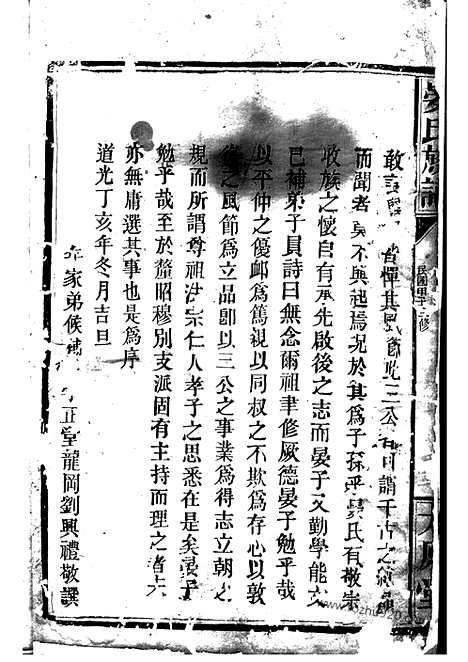 晏氏族譜
民國甲子三修
敢言 者憚其風節 三公 可謂千古之
而聞者莫不興起焉况於其爲子孫乎晏氏有敬宗
收族之懷自有承先啟後之志而晏子又勤學能文
已補弟子員詩曰無念爾祖聿修厥德晏子勉乎哉
以平仲之優邮爲篤親以同叔之不欺爲存心以敦
之風節爲立品卽以三公之事業爲得志立朝之
規而所謂尊祖 宗仁人孝子之思悉在是矣晏子
勉乎哉至於釐昭穆別支派固有主持而理之者六
亦無庸選其事也是爲序
道光丁亥年冬月吉旦
家弟候 正堂龍岡劉興禮敬譔